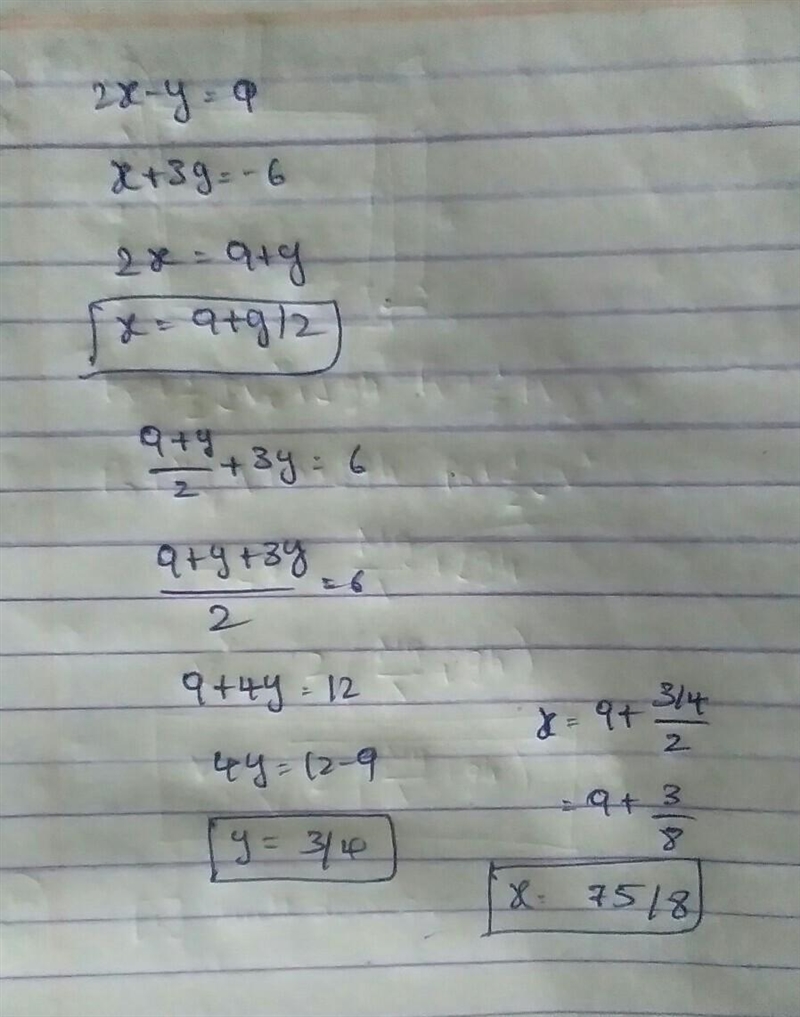 2x-y=9
x+3y=-6
2x = 9+y
x = 9+y/2
9+y/2 + 3y = 6
9+y+3y/2 = 6
9+4y = 12
4y = 12-9
y = 3/4
x = 9+ 3/4/2
= 9+ 3/8
x = 75/8